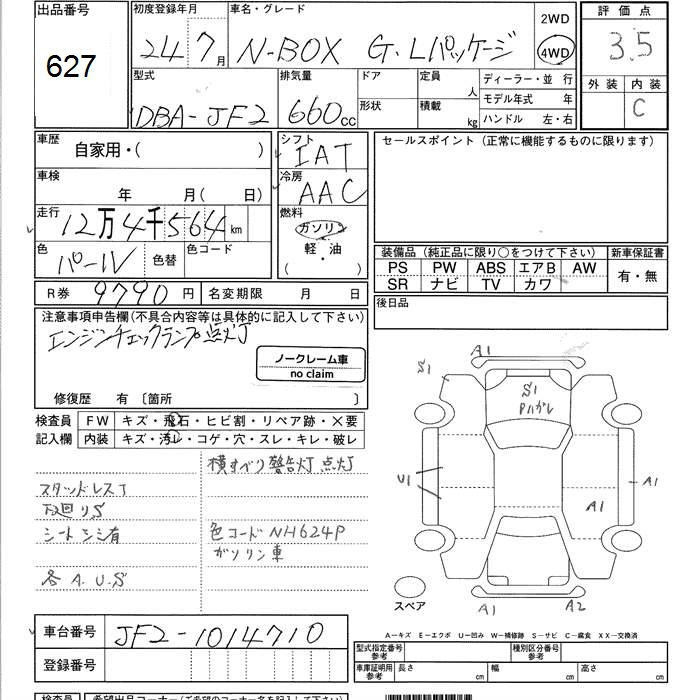 出品番号 初度登録年月 車名・グレード 2WD 評価点
627 24 7月 N-BOX G.Lパッケージ 4WD 3.5
型式 排気量 ドア 定員 人 ディーラー・並 行 外装 内装
DBA-JF2 660cc 形状 積載 kg モデル年式 年 C
ハンドル 左・右
車歴 自家用・( ) シフト IAT セールスポイント (正常に機能するものに限ります)
車検 年 月(日) 冷房 AAC
走行 12万4千564km 燃料 ガソリン
軽・油
( ・ )
色 パール 色替 色コード
装備品 (純正品に限り○をつけて下さい) 新車保証書
PS PW ABS エアB AW 有・無
SR ナビ TV カワ
R券 9790円 名変期限 月 日 後日品
注意事項申告欄(不具合内容等は具体的に記入して下さい)
エンジンチェックランプ点灯
ノークレーム車
no claim
修復歴 有 〔箇所 〕
検査員 FW キズ・飛石・ヒビ割・リペア跡・×要
記入欄 内装 キズ・汚レ・コゲ・穴・スレ・キレ・破レ
横すべり警告灯点灯
スタッドレスT
下廻りS
シートシミ有
色コードNH624P
ガソリン車
各A.U.S
A1
S1
S1
Pハガレ
U1
A1
A1
スペア
A1
A2
A―キズ E―エクボ U―凹み W―補修跡 S―サビ C―腐食 XX―交換済
車台番号 JF2-1014710
登録番号
型式指定番号 参考 種別区分番号 参考
車庫証明用 参考 長さ cm 幅 cm 高さ cm
検査員 希望出品コーナー(ご希望のコーナー名を記入して下さい)